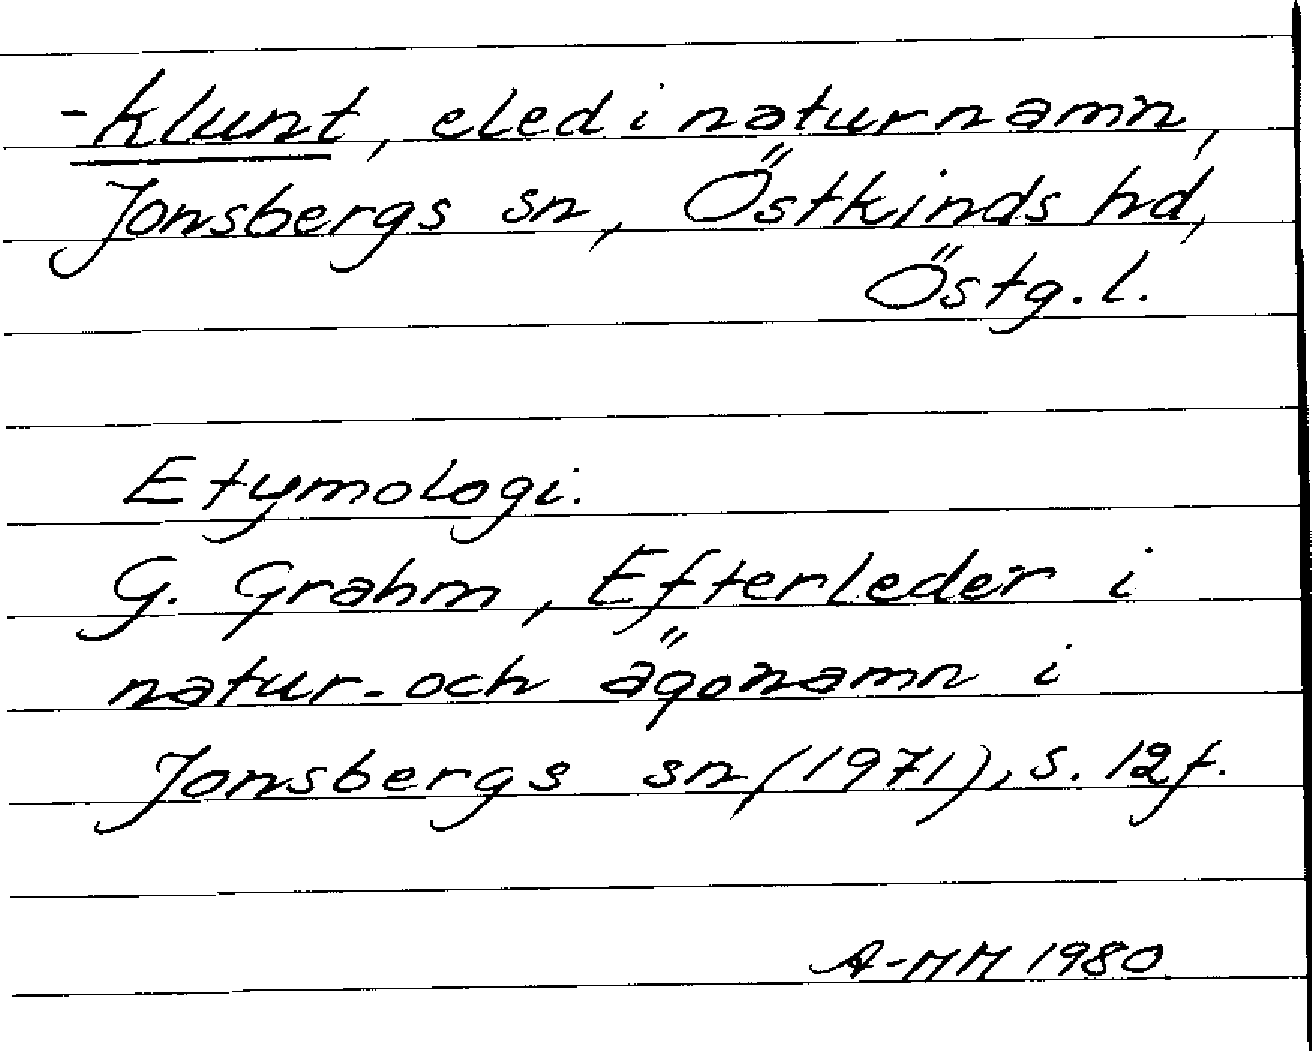 -klunt, eled i naturnamn,
Jonsbergs sn, Östkinds hd,
Östg. l.
Etymologi.
G. Grahm, Efterleder i
natur- och ägonamn i
Jonsbergs sn (1971), s. 12 f.
A-MM 1980